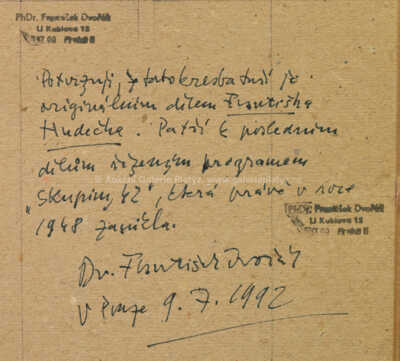 PhDr. František Dvořák
U Kublova 12
147 00 Praha 4
Potvrzuji, že tato kresba tuší je
originálním dílem Františka
Hudečka. Patří k posledním
dílům programem
"Skupiny 42", která právě v roce
1948 zanikla.
PhDr. František Dvořák
U Kublova 12
147 00 Praha 4
Dr. František Dvořák
V Praze 9. 7. 1992